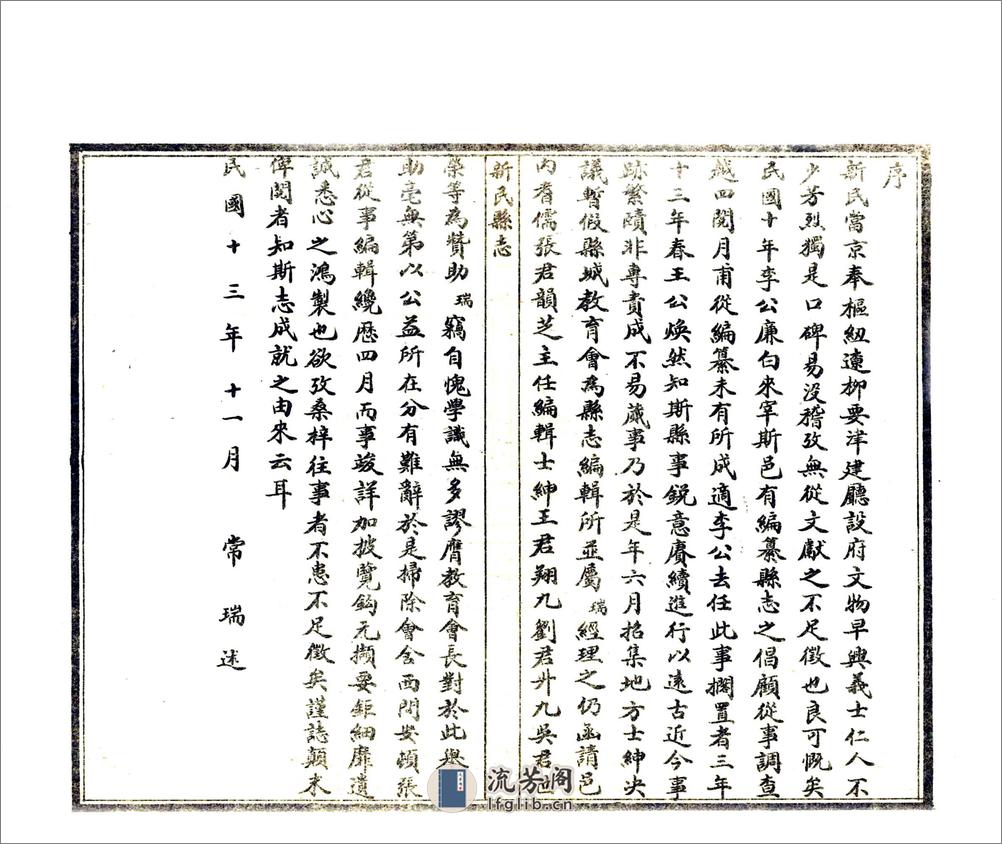 序
新民當京奉樞紐遼柳要津建廳設府文物早興義士仁人不
少芳烈獨是口碑易沒稽攷無從文獻之不足徵也良可慨矣
民國十年李公廉白來宰斯邑有編纂縣志之倡顧從事調查
越四閱月甫從編纂未有所成適李公去任此事擱置者三年
十三年春王公煥然知斯縣事銳意賡續進行以遠古近今事
跡繁賾非專責成不易蕆事乃於是年六月招集地方士紳決
議暫假縣城教育會為縣志編輯所並屬瑞經理之仍函請邑
內耆儒張君韻芝主任編輯士紳王君翔九劉君升九吳君世
新民縣志
榮等為贊助瑞竊自愧學識無多謬膺教育會長對於此舉
助毫無第以公益所在分有難辭於是掃除會舍西間安頓張
君從事編輯纔歷四月而事竣詳加披覽鈎元擷要鉅細靡遺
誠悉心之鴻製也欲攷桑梓往事者不患不足徵矣謹誌顛末
俾閱者知斯志成就之由來云耳
民國十三年十一月 常瑞述
流芳阁
lfglib.cn